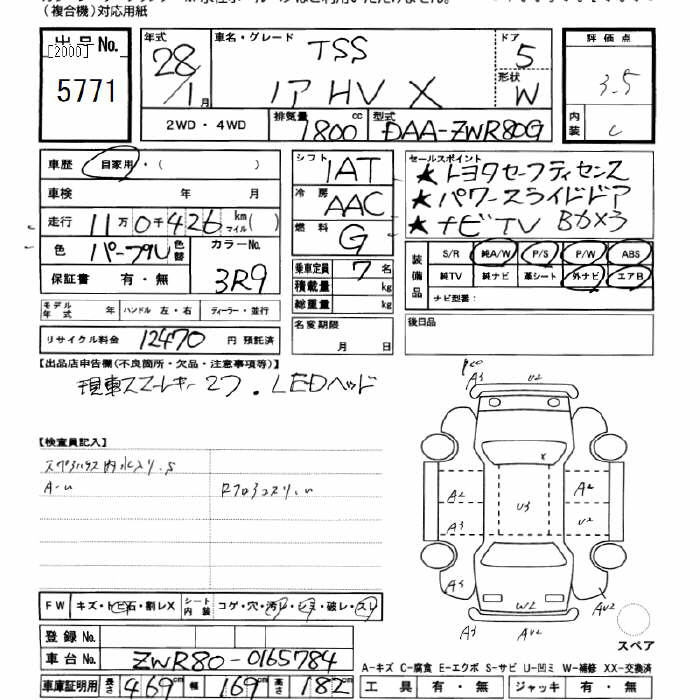 (複合機)対応用紙
出品No.
[2000]
5771
年式
28/1月
車名・グレード
TSS
ノア HV X
ドア
5
形状
W
評価点
3.5
内装
C
2WD・4WD
排気量
1800cc
型式
DAA-ZWR80G
車歴
自家用・( )
車検 年 月
走行 11万0千426 km マイル( )
色 パープルU 色替
カラーNo.
3R9
保証書 有・無
シフト
IAT
冷房
AAC
燃料
G
乗車定員 7 名
積載量 kg
総重量 kg
セールスポイント
★トヨタセーフティセンス
★パワースライドドア
★ナビTV Bカメラ
装備品
S/R 純A/W P/S P/W ABS
純TV 純ナビ 革シート 外ナビ エアB
ナビ型番:
モデル年式 年 ハンドル 左・右 ディーラー・並行
リサイクル料金 12470 円 預託済
名変期限
月 日
後日品
【出品店申告欄(不良箇所・欠品・注意事項等)】
現車スマートキー2ケ . LEDヘッド
A3 U2
【検査員記入】
A2 A2
U3
A3 U2
A3 AU2
W2
A3 AU2
FW キズ・トビ石・割レX シート内装 コゲ・穴・汚レ・シミ・破レ・スレ
登録No.
車台No. ZWR80-0165784
車庫証明用 長さ 469cm 幅 169cm 高さ 182cm
スペア
A-キズ C-腐食 E-エクボ S-サビ U-凹ミ W-補修 XX-交換済
工具 有・無 ジャッキ 有・無